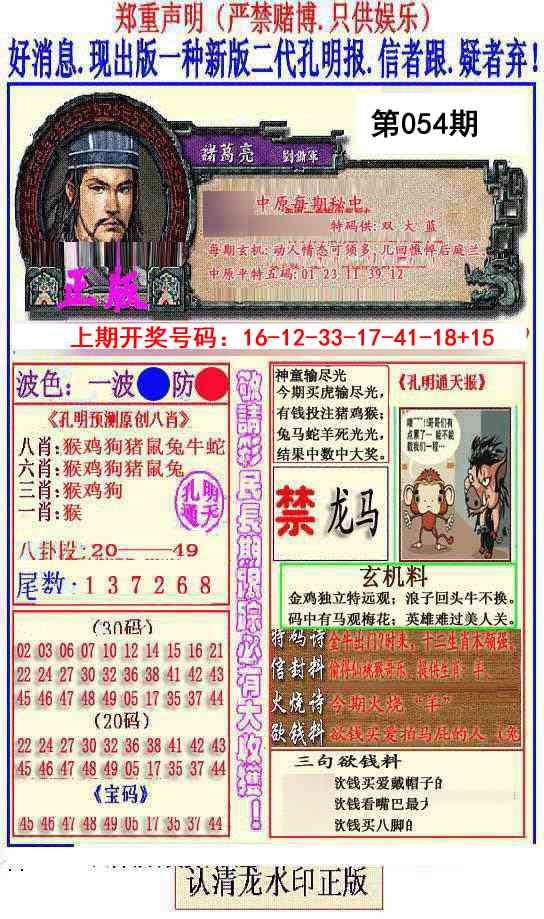 郑重声明（严禁赌博.只供娱乐）
好消息.现出版一种新版二代孔明报.信者跟.疑者弃！
第054期
諸葛亮
劉備軍
中原每期秘中
特码供：双 大 蓝
每期玄机：动人情态可须多，几回憔悴后庭兰。
中原平特五码：01 23 11 39 12
正版
上期开奖号码：16-12-33-17-41-18+15
波色：一波 防
《孔明预测原创八肖》
八肖：猴鸡狗猪鼠兔牛蛇
六肖：猴鸡狗猪鼠兔
三肖：猴鸡狗
一肖：猴
孔明
通天
八卦段：20——49
尾数：137268
(30码)
02 03 06 07 10 12 14 15 16 21
22 24 27 30 32 36 38 41 42 43
45 46 47 48 49 05 17 35 37 44
(20码)
22 24 27 30 32 36 38 41 42 43
45 46 47 48 49 05 17 35 37 44
《宝码》
45 46 47 48 49 05 17 35 37 44
敬請彩民長期跟踪必有大收獲！
神童输尽光
今期买虎输尽光，
有钱投注猪鸡猴；
兔马蛇羊死光光，
结果中数中大奖。
禁 龙马
《孔明通天报》
哥们有
点累了－能不能
玄机料
金鸡独立特远观；浪子回头牛不换。
码中有马观梅花；英雄难过美人关。
特码诗 金牛出门?时来，十二生肖本领强。
信封料
火烧诗 今期火烧“羊”
欲钱料 欲钱买爱拍马屁的人
三句欲钱料
欲钱买爱戴帽子的
欲钱看嘴巴最大
欲钱买八脚的
认清龙水印正版